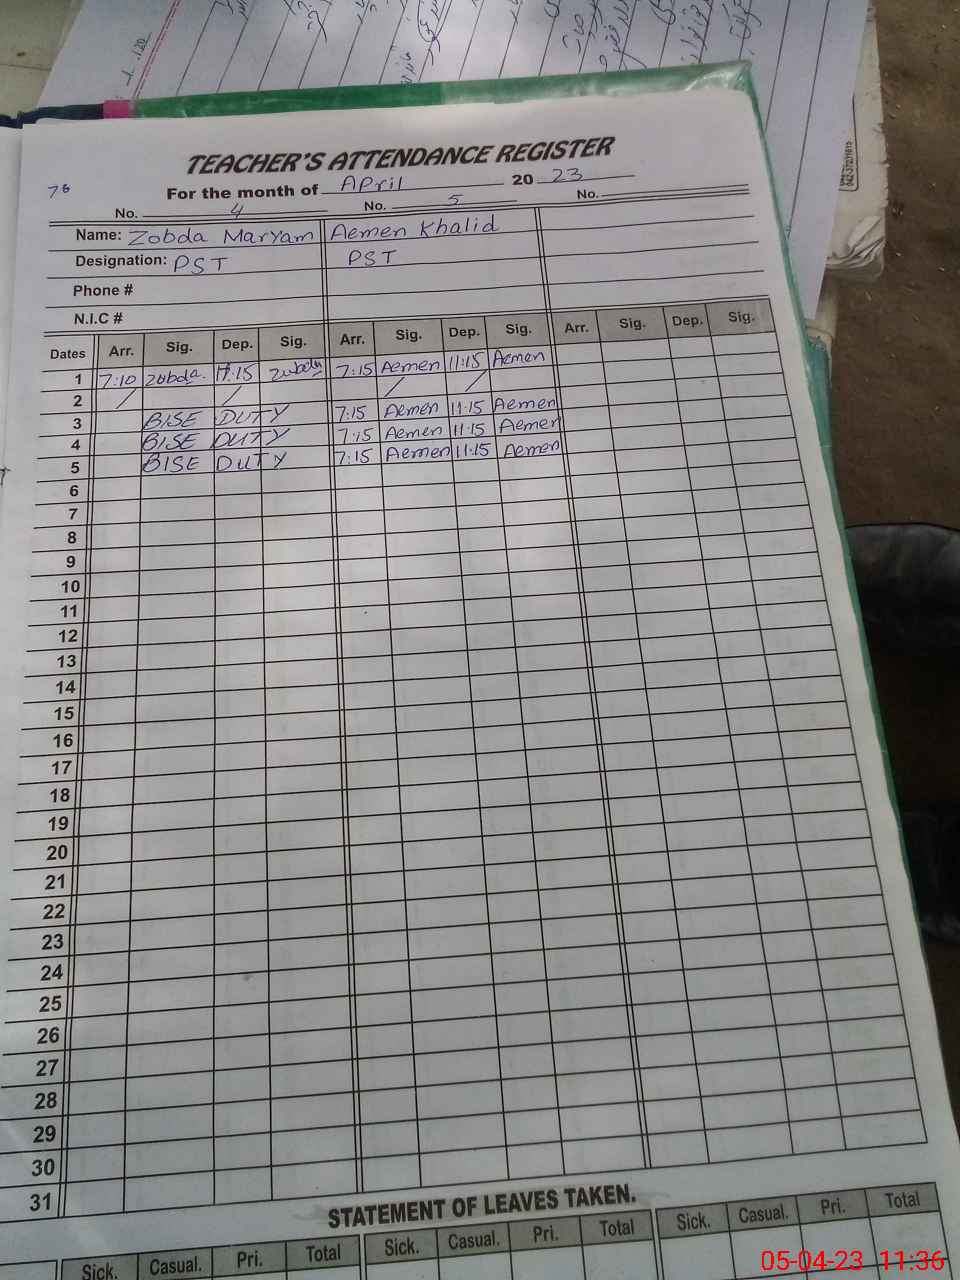 TEACHER'S ATTENDANCE REGISTER
76
For the month of April 20 23
No. 4 No. 5 No.
Name: Zobda Maryam Aemen Khalid
Designation: PST PST
Phone #
N.I.C #
Dates Arr. Sig. Dep. Sig. Arr. Sig. Dep. Sig. Arr. Sig. Dep. Sig.
1 7:10 Zobda. 11:15 Zobda 7:15 Aemen 11:15 Aemen
2 / / / /
3 BISE DUTY 7:15 Aemen 11:15 Aemen
4 BISE DUTY 7:15 Aemen 11:15 Aemen
5 BISE DUTY 7:15 Aemen 11:15 Aemen
6
7
8
9
10
11
12
13
14
15
16
17
18
19
20
21
22
23
24
25
26
27
28
29
30
31
STATEMENT OF LEAVES TAKEN.
Sick. Casual. Pri. Total Sick. Casual. Pri. Total Sick. Casual. Pri. Total
05-04-23 11:36